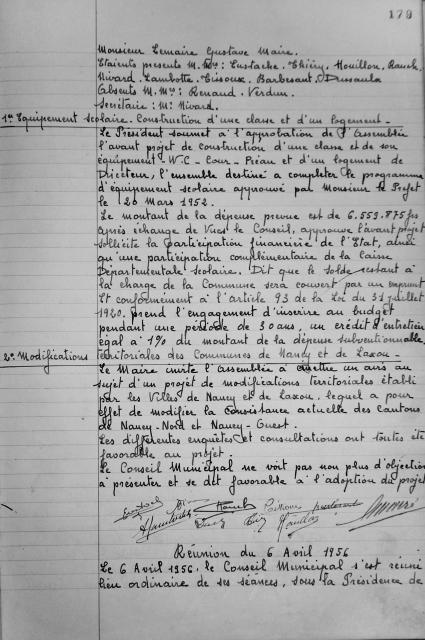 179
Monsieur Lemaire Gustave Maire.
Etaients presents M.Mrs: Eustache. Thiéry. Mouillon, Rauch,
Nivard. Lambotte. Cisoux. Barbesant. Dussaula
Absents M.Ms: Renaud. Verdun.
Secrétaire: Mr Nivard.
1º Equipement scolaire. Construction d'une classe et d'un logement.
Le Président soumet à l'approbation de l'Assemblée
l'avant projet de construction d'une classe et de son
équipement - W-C - Cour - Préau et d'un logement de
Directeur, l'ensemble destiné a completer le programme
d'équipement scolaire approuvé par Monsieur le Prefet
le 20 Mars 1952.
Le montant de la dépense prevue est de 6.559.875 frs
Après échange de Vues le Conseil, approuve l'avant projet
sollicite la participation financière de l'Etat, ainsi
qu'une participation complémentaire de la Caisse
Départementale scolaire. Dit que le solde restant à
la charge de la Commune sera couvert par un emprunt
Et conformément à l'Article 93 de la Loi du 31 Juillet
1920. prend l'engagement d'inscrire au budget
pendant une période de 30 ans, un crédit d'entretien
égal à 1% du montant de la dépense subventionnable.
2º Modifications territoriales des Communes de Nancy et de Laxou.
Le Maire invite l'Assemblée à émettre un avis au
sujet d'un projet de modifications territoriales établi
par les Villes de Nancy et de Laxou, lequel a pour
effet de modifier la consistance actuelle des cantons
de Nancy-Nord et Nancy-Ouest.
Les différentes enquêtes et consultations ont toutes été
favorable au projet.
Le Conseil Municipal ne voit pas non plus d'objection
à présenter et se dit favorable à l'adoption du projet
Réunion du 6 Avril 1956
Le 6 Avril 1956, le Conseil Municipal s'est réuni
lieu ordinaire de ses séances, sous la Présidence de